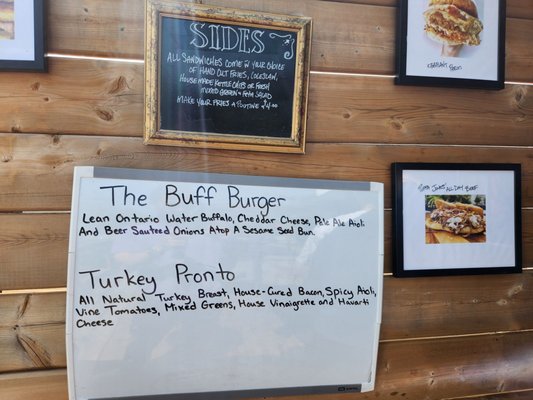 SIDES
ALL SANDWICHES COME W/ YOUR CHOICE
OF HAND CUT FRIES, COLESLAW,
HOUSE MADE KETTLE CHIPS OR FRESH
MIXED GREEN & FETA SALAD
MAKE YOUR FRIES A POUTINE $4.00
The Buff Burger
Lean Ontario Water Buffalo, Cheddar Cheese, Pale Ale Aioli
And Beer Sauteed Onions Atop A Sesame Seed Bun.
Turkey Pronto
All Natural Turkey Breast, House-Cured Bacon, Spicy Aioli,
Vine Tomatoes, Mixed Greens, House Vinaigrette and Havarti
Cheese
ALL DAY BEEF